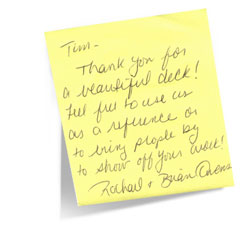 Tim-
Thank you for
a beautiful deck!
Feel free to use us
as a reference or
to bring people by
to show off your work!
Rachael + Brian